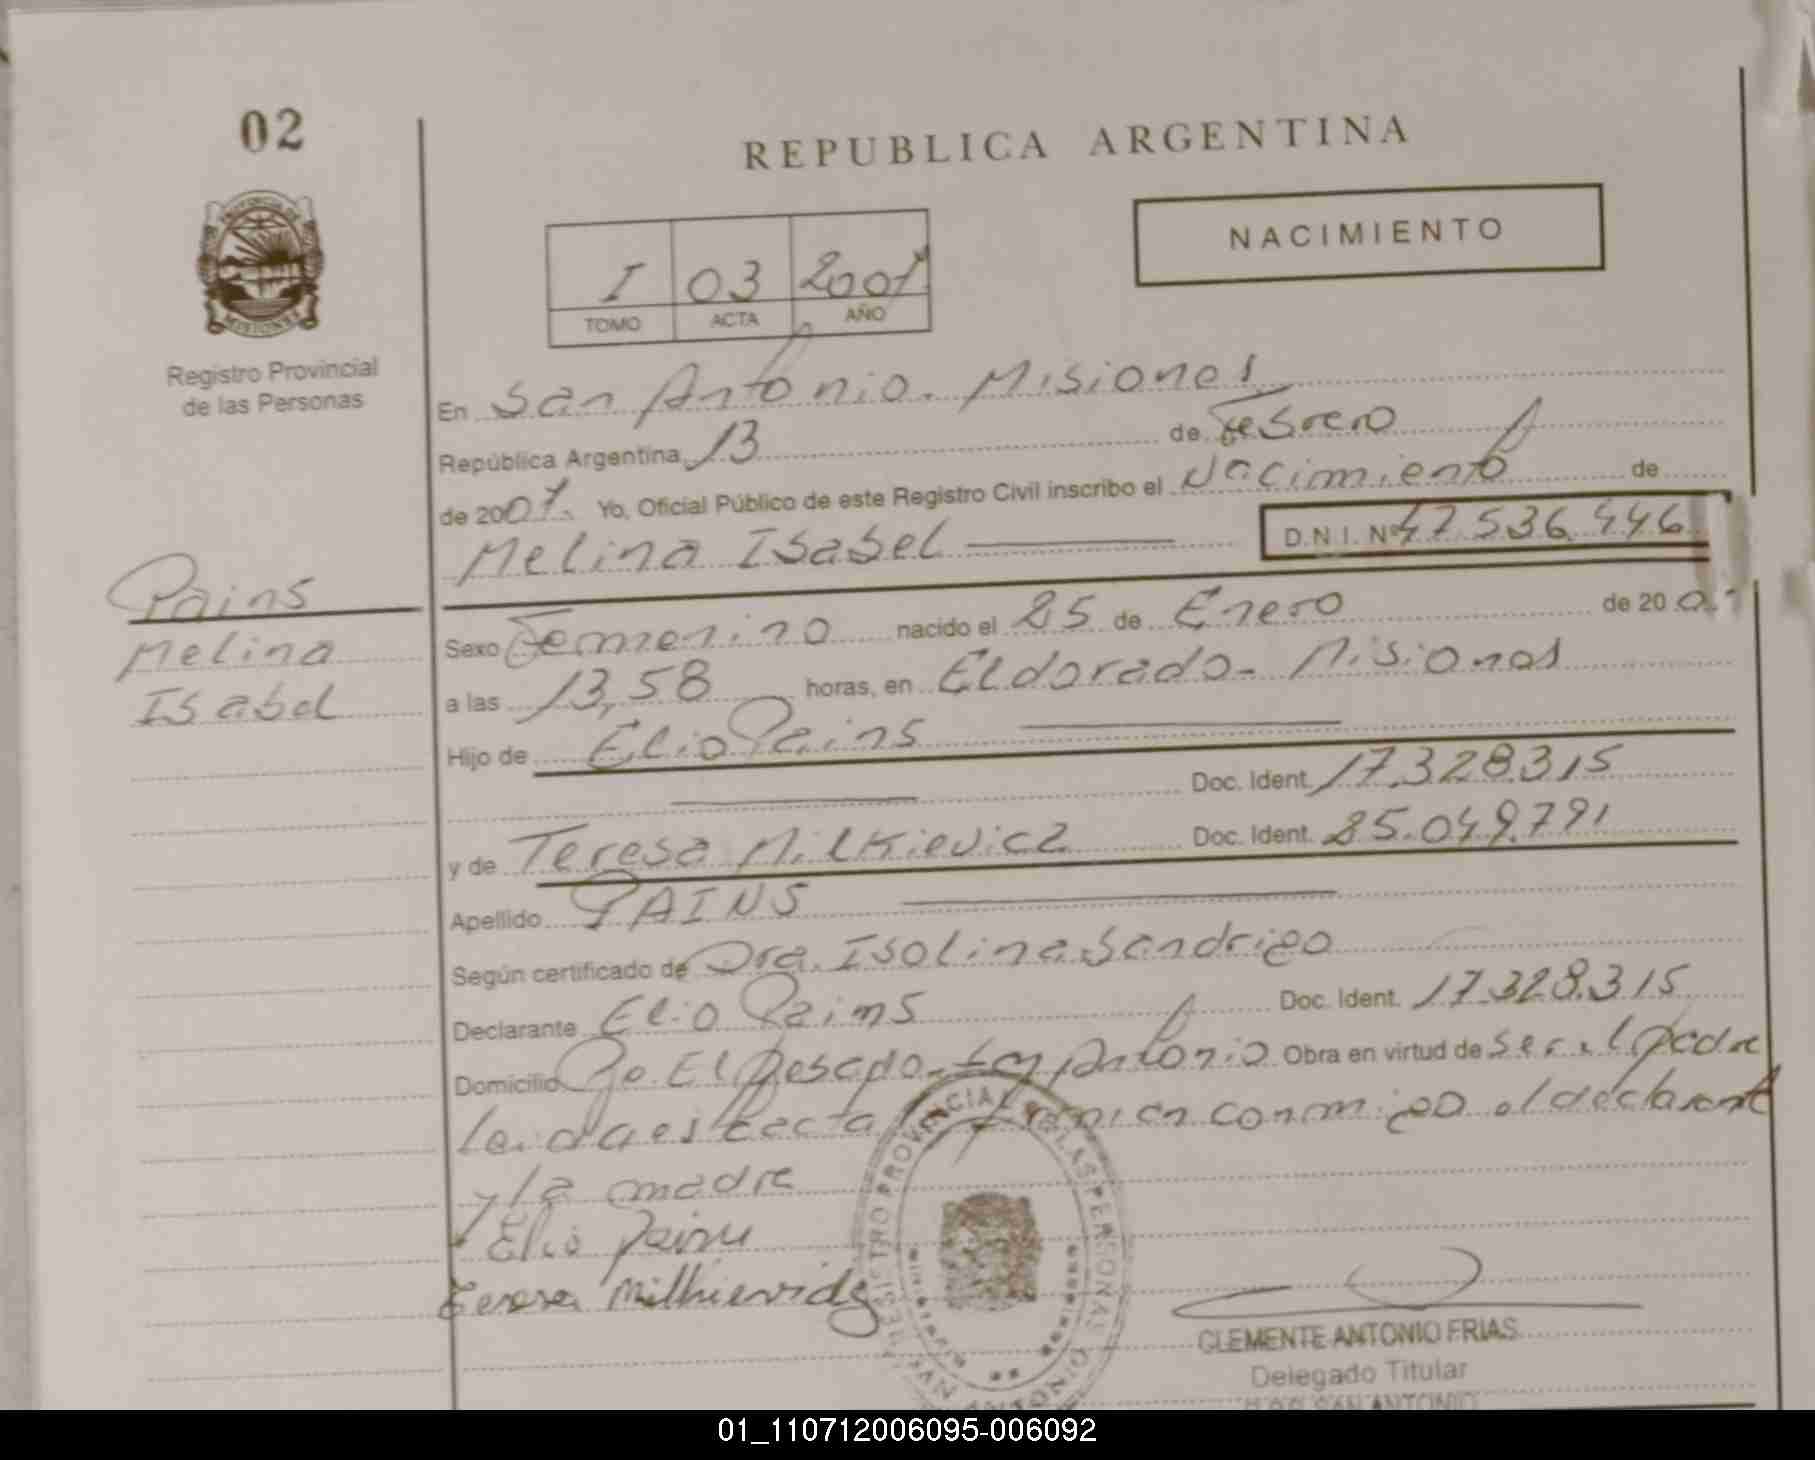 02
REPUBLICA ARGENTINA
NACIMIENTO
I 03 2007
TOMO ACTA AÑO
PROVINCIA DE
MISIONES
Registro Provincial
de las Personas
En San Antonio. Misiones
República Argentina 13 de Febrero
de 2007. Yo, Oficial Público de este Registro Civil inscribo el Nacimiento de
Melina Isabel D.N.I. Nº 47.536.446
Pains
Melina
Isabel
Sexo Femenino nacido el 25 de Enero de 20 07
a las 13,58 horas, en Eldorado - Misiones
Hijo de Elio Pains
Doc. Ident. 17.328.315
y de Teresa Milkievicz Doc. Ident. 25.049.791
Apellido PAINS
Según certificado de Dra. Isolina Sandrigo
Declarante Elio Pains Doc. Ident. 17.328.315
Domicilio Pje. El Pesado - San Antonio Obra en virtud de ser el padre
leida esta acta la firman conmigo el declarante
y la madre
Elio Pains
Teresa
CLEMENTE ANTONIO FRIAS
Delegado Titular
SAN ANTONIO
01_110712006095-006092